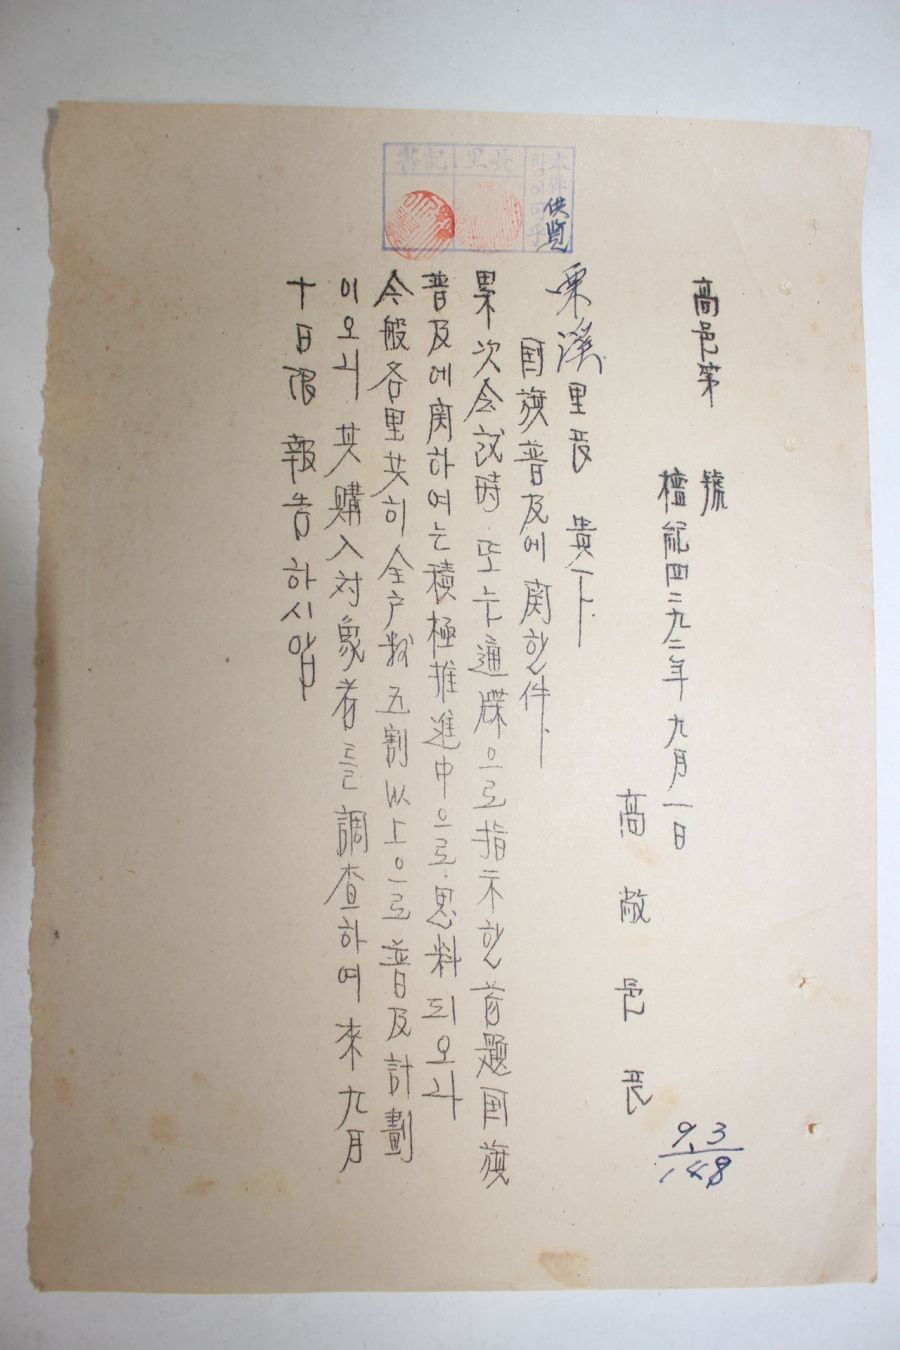 高邑第　　號
檀紀四二九二年九月一日
高敞邑長
栗溪里長 貴下
国旗普及에 関한 件
累次会議時 또는 通牒으로 指示한 首題国旗
普及에 関하여는 積極推進中으로 思料되오나
今般各里共히 全户数五割以上으로 普及計劃
이오니 其購入対象者를 調査하여 来九月
十日限 報告하시압
9.3
148
書記 里長
本件
供覧